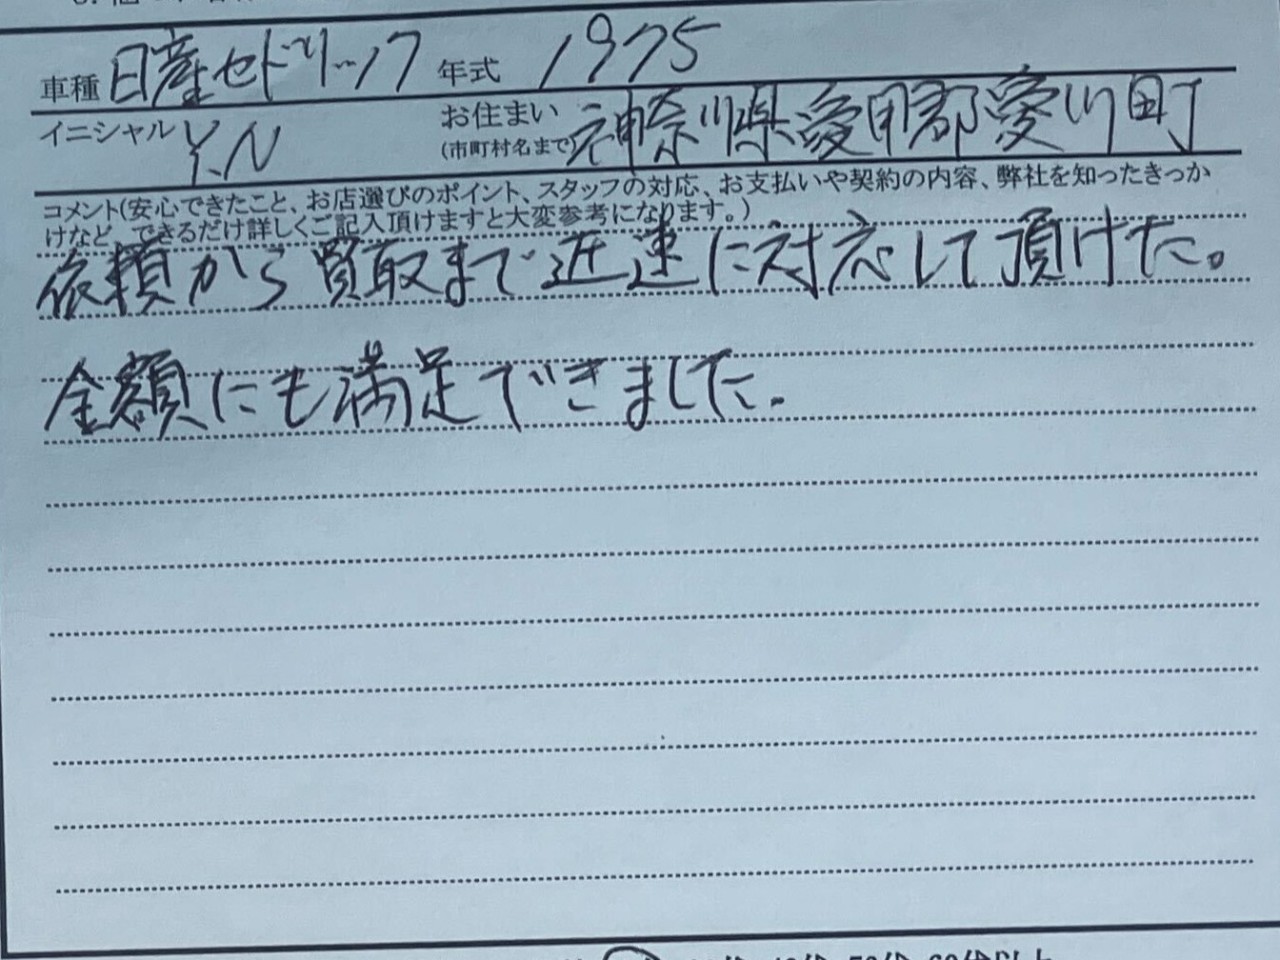 車種 日産セドリック 年式 1975
イニシャル Y.N お住まい (市町村名まで) 神奈川県愛甲郡愛川町
コメント(安心できたこと、お店選びのポイント、スタッフの対応、お支払いや契約の内容、弊社を知ったきっか
けなど、できるだけ詳しくご記入頂けますと大変参考になります。)
依頼から買取まで迅速に対応して頂けた。
金額にも満足できました。